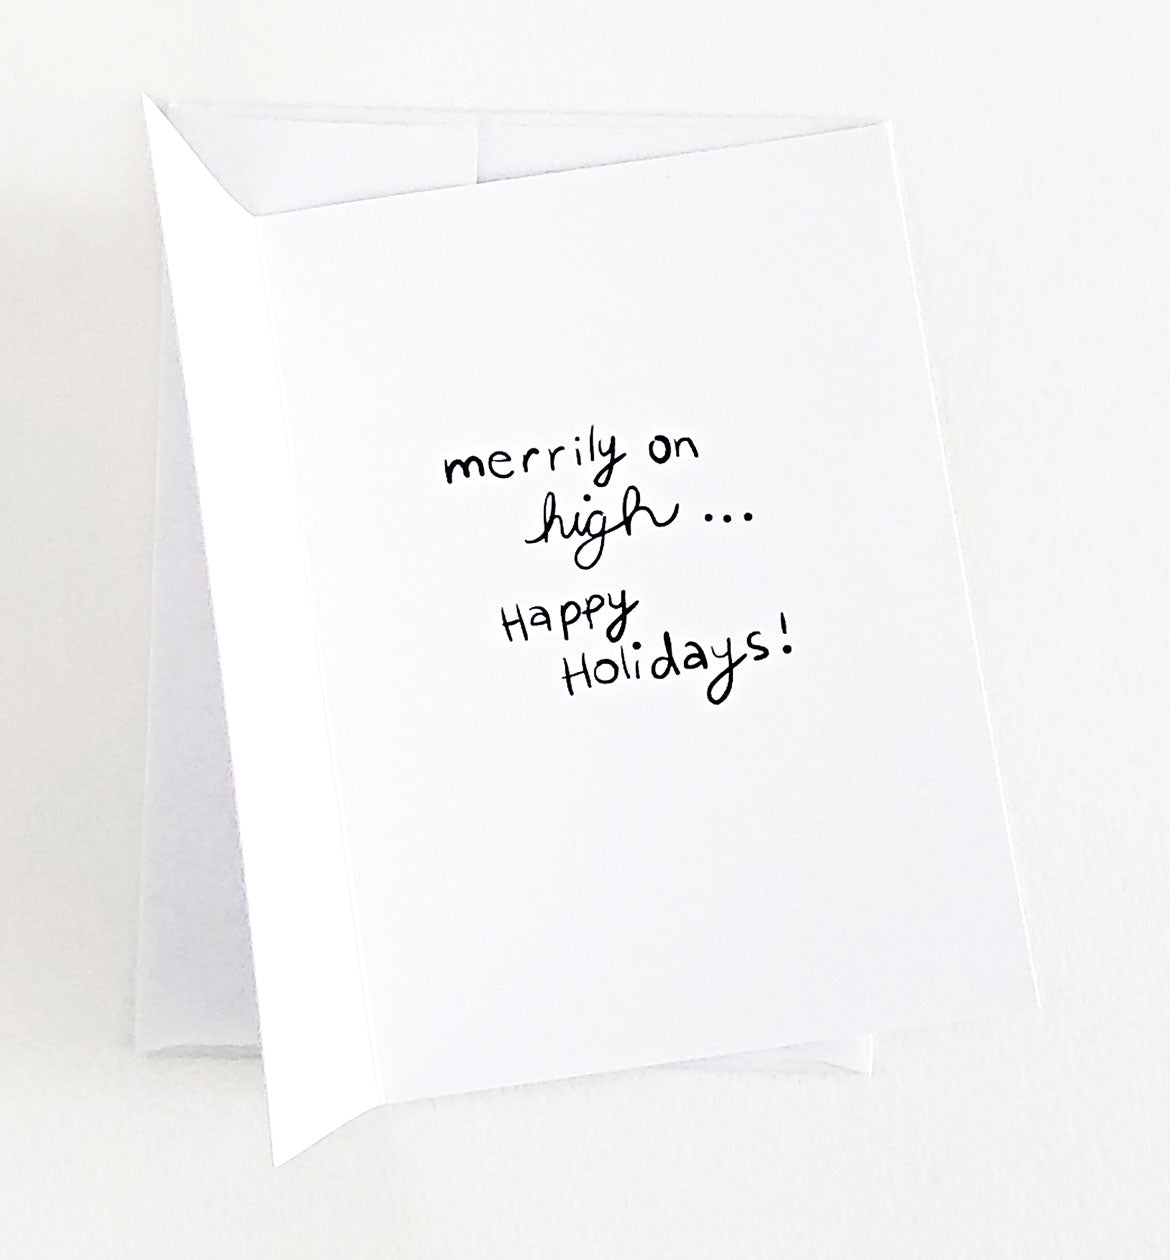 merrily on
high ...
Happy
Holidays!